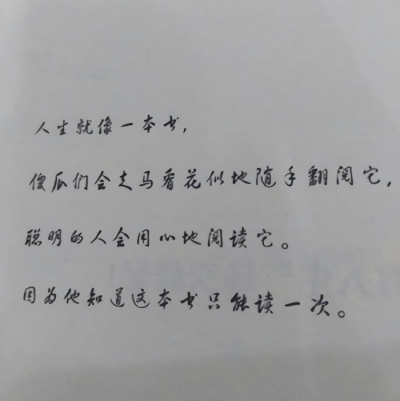 人生就像一本书，
傻瓜们会走马看花似地随手翻阅它，
聪明的人会用心地阅读它。
因为他知道这本书只能读一次。